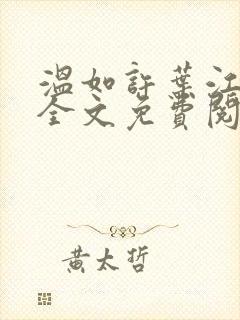 溫如許葉江
全文免費閱
黃太哲